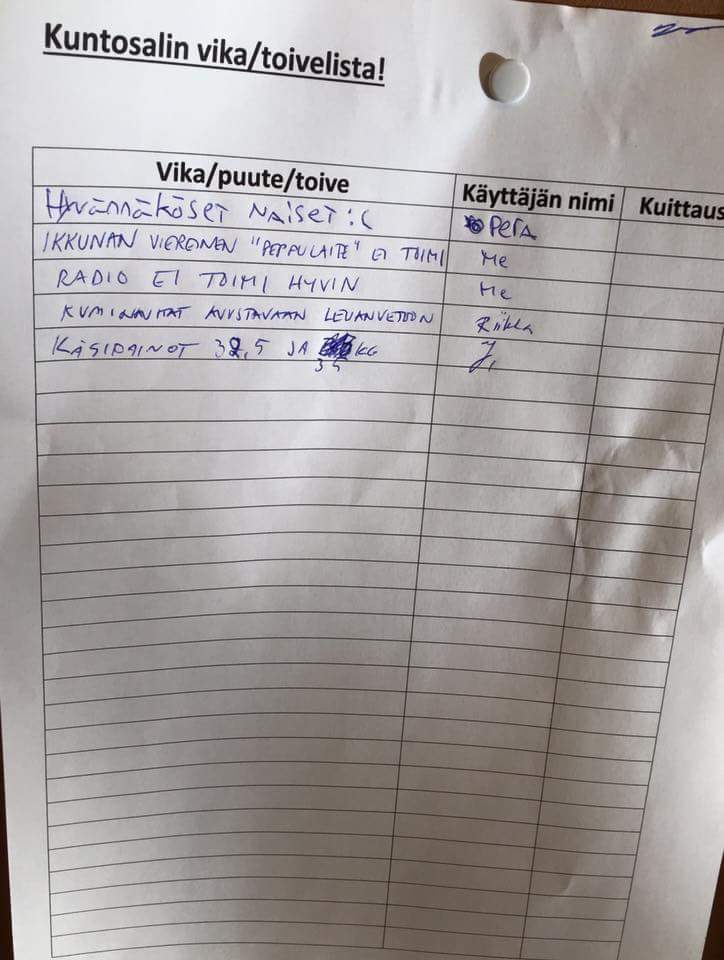 Kuntosalin vika/toivelista!
Vika/puute/toive Käyttäjän nimi Kuittaus
Hyvännäköset Naiset :( Pera
IKKUNAN VIEREINEN "PEPPULAITE" EI TOIMI Me
RADIO EI TOIMI HYVIN Me
KUMINAUHAT AVUSTAVAAN LEUANVETOON Riikka
KÄSIPAINOT 32,5 JA 35 KG J.